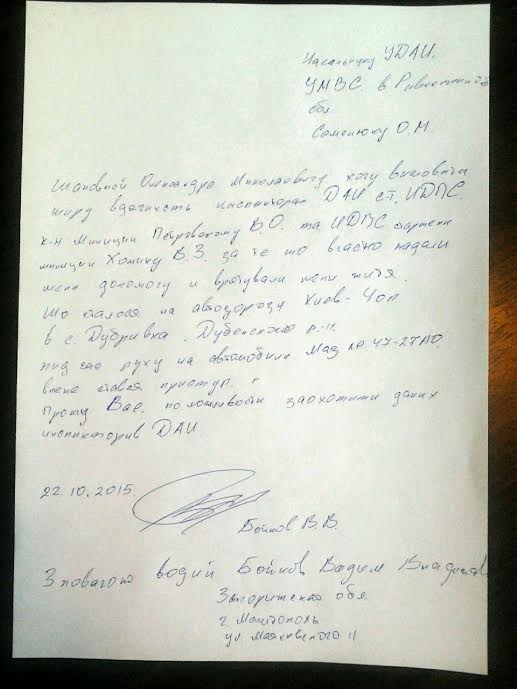 Начальнику УДАИ.
УМВС в Ривненский
обл
Семенюку О.М.
Шановной Олександре Миколаевичу хочу висловити
щиру вдячнисть инспиктарам ДАИ ст. ИДПС
к-н милиции Петровскому В.О. та ИДПС старшени
милиции Хомику В.З. за те шо вчастно надали
мени допомогу и врятували мени житя.
Шо сталося на автодорозу Киев-Чоп
в с. Дубривка. Дубенского р-н.
пид час руху на автомобили Маз АР 47-27АО.
вмене стався приступ.
Прошу Вас. по можливости заохотити даних
инспикторив ДАИ
22.10.2015.
Бойков В.В.
З повагою водий Бойков Вадим
Запорижская обл
г Мелитополь
ул Маяковского 11